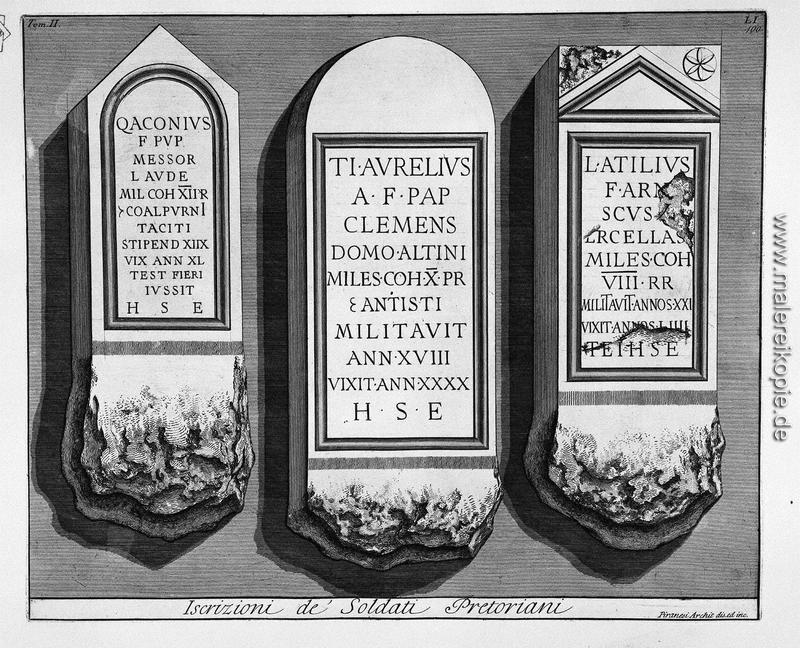 Tom. II.
LI
100
QACONIVS
F PVP
MESSOR
LAVDE
MIL COH XII PR
COALPVRNI
TACITI
STIPEND XIIX
VIX ANN XL
TEST FIERI
IVSSIT
H S E
TI·AVRELIVS
A·F·PAP
CLEMENS
DOMO·ALTINI
MILES·COH·X·PR
ANTISTI
MILITAVIT
ANN·XVIII
VIXIT·ANN·XXXX
H·S·E
L·ATILIVS
F·ARN
SCVS
ERCELLAS
MILES·COH
VIII·RR
MILITAVIT·ANNOS·XXI
VIXIT·ANNOS·LIIII
TEI·H S E
Iscrizioni de' Soldati Pretoriani
Piranesi Archit. dis. ed inc.
www.malereikopie.de